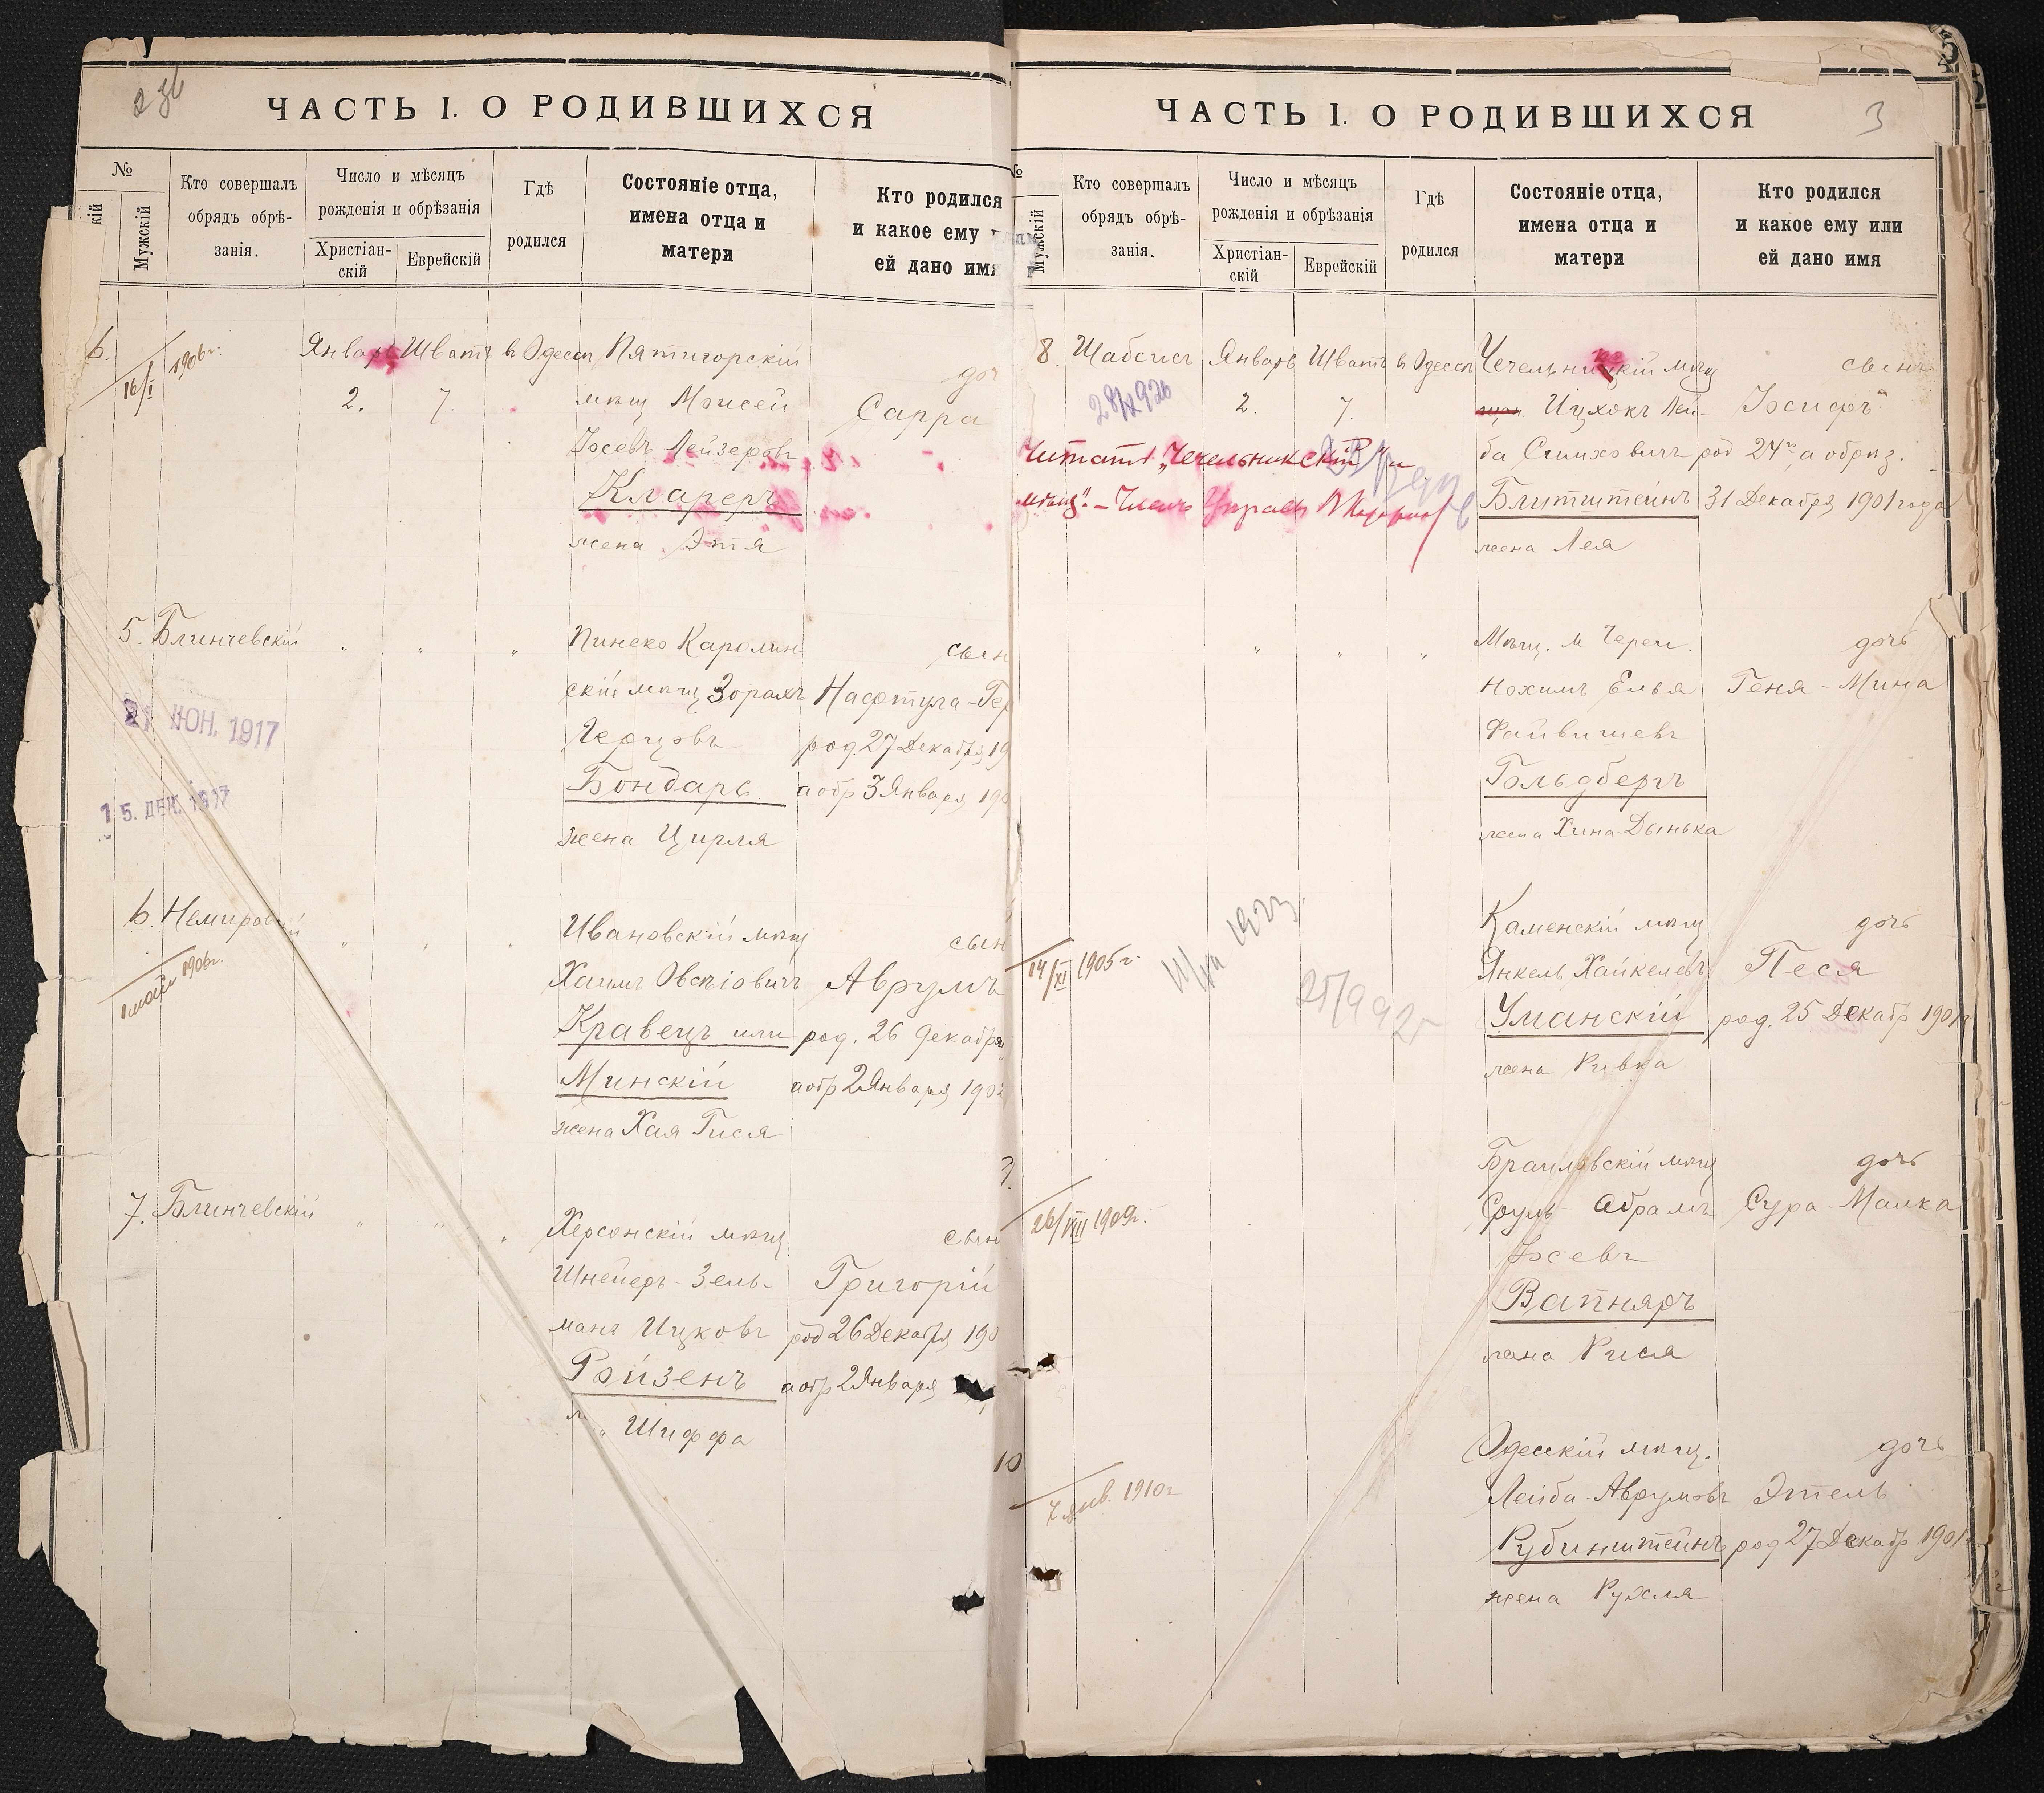 ЧАСТЬ I. О РОДИВШИХСЯ
№
кій
Мужскій
Кто совершалъ
обрядъ обрѣ-
занія.
Число и мѣсяцъ
рожденія и обрѣзанія
Христіан-
скій
Еврейскій
Гдѣ
родился
Состояніе отца,
имена отца и
матери
Кто родился
и какое ему
ей дано имя
6.
16/I 1906г.
Январь Шватъ в Одессѣ Пятигорскій
2. 7. мѣщ Моисей
Іосевъ Лейзеровъ
Клареръ
жена Этя
доч
Сарра
5. Блинчевскій " " "
21 ІЮН. 1917
15. ДЕК. 1917
Пинско Каролин-
скій мѣщ Зорахъ
Герцовъ
Бондарь
жена Цирля
сын
Нафтула-Гер
род. 27 Декабря 19
а обр 3 Января 190
6. Немировскій " " "
1 мая 1906г.
Ивановскій мѣщ
Хаимъ Овсіовичъ
Кравецъ или
Минскій
жена Хая Гися
сын
Аврумъ
род. 26 декабря
а обр 2 Января 1902
7. Блинчевскій " " "
Херсонскій мѣщ
Шнейеръ-Зель-
манъ Ицковъ
Ройзенъ
" Шиффа
сын
Григорій
род 26 Декабря 190
а обр 2 Января
ЧАСТЬ I. О РОДИВШИХСЯ
3
№
Мужскій
Кто совершалъ
обрядъ обрѣ-
занія.
Число и мѣсяцъ
рожденія и обрѣзанія
Христіан-
скій
Еврейскій
Гдѣ
родился
Состояніе отца,
имена отца и
матери
Кто родился
и какое ему или
ей дано имя
8. Шабсисъ Январь Шватъ в Одессѣ
2. 7.
Читать „Чечельникскій" и
мѣщ". – Членъ Управы
Чечельницкій мѣщ
Ицхокъ Лей-
ба Симховичъ
Блитштейнъ
жена Лея
сынъ
Іосифъ
род 24го, а обрѣз.
31 Декабря 1901 года
" " "
Мѣщ. м Череп.
Нохимъ Елья
Файвишевъ
Гольдбергъ
жена Хина-Дынька
дочь
Геня-Мина
14/XI 1905г.
Каменскій мѣщ
Янкель Хайкелевъ
Уманскій
жена Ривка
дочь
Песя
род. 25 Декабр 1901г
26/VIII 1909г.
Браиловскій мѣщ
Сруль Абрамъ
Іосевъ
Вапняръ
жена Рися
дочь
Сура Малка
10
7 янв. 1910г
Одесскій мѣщ.
Лейба-Аврумовъ
Рубинштейнъ
жена Рухля
дочь
Этель
род 27 Декабр 1901